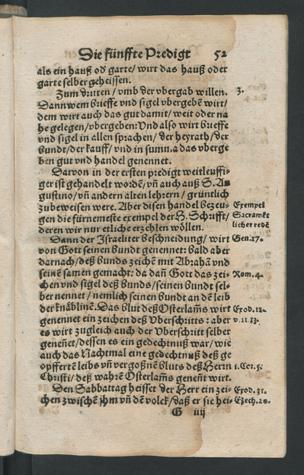 Die fünffte Predigt 52
als ein hauß oď garte/ wirt das hauß oder
garte selber geheissen.
Zum dritten / vmb der vbergab willen. 3.
Dann wem brieffe vnd sigel vbergebē wirt/
dem wirt auch das gut damit/ weit oder na
he gelegen/ vbergeben: Vnd also wirt brieffe
vnd sigel in allen sprachen/ der heyrath/ der
bundt/ der kauff/ vnd in summa das vberge
ben gut vnd handel genennet.
Darvon in der ersten predig weitleuffi-
ger ist gehandelt wordē/ vñ auch auß S. Au
gustino/ vñ andern alten lehrern / gründtlich
zubeweisen were. Aber diser handel bezeu- Exempel
gen die fürnemeste exempel der H. Schrifft/ Sacramēt
deren wir nur etliche erzehlen wöllen. licher redē
Dann der Israeliter beschneidung/ wirt Gen.17.
von Gott seinen bundt genennet: bald aber
darnach/ deß bunds zeichē mit Abrahā vnd
seinē samen gemacht: da dañ Gott das zei- Rom.4.
chen vnd sigel deß bunds/ seinen bundt sel-
ber nennet / nemlich seinen bundt an dē leib
der knäblinē. Das blut deß Osterlams wirt Exod.12.
genennet ein zeichen deß Überschritts: aber v. 11. 13.
es wirt zugleich auch der Überschritt selber
genēnet/ dessen es ein gedechtnuß war/ wie
auch das Nachtmal eine gedechtnuß deß ge
opffertē leibs vñ vergoßnē bluts deß Herrn 1.Cor.5.
Christi/ deß wahrē Osterlams genēnt wirt.
Den Sabbathtag heisset der Herr ein zei- Exod.31.
chen zwischē jhm vñ dē volck/ daß er sie hei- Ezech.20.
G iiij